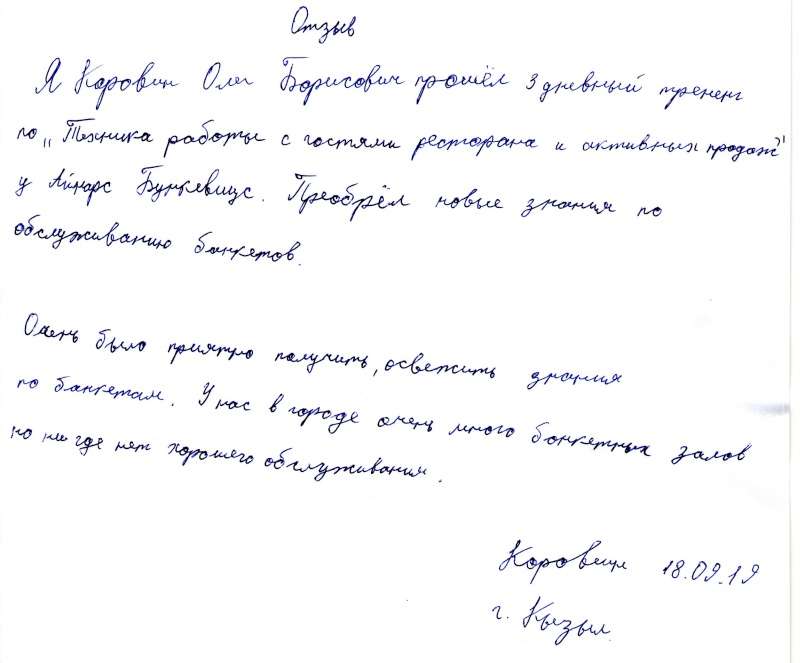 Отзыв
Я Коровин Олег Борисович прошёл 3 дневный трененг
по „Техника работы с гостями ресторана и активных продаж"
у Айнарс Бункевицс. Преобрёл новые знания по
обслуживанию банкетов.
Очень было приятно получить, освежить знания
по банкетам. У нас в городе очень много банкетных залов
но ни где нет хорошего обслуживания.
Коровин 18.09.19
г. Кызыл.